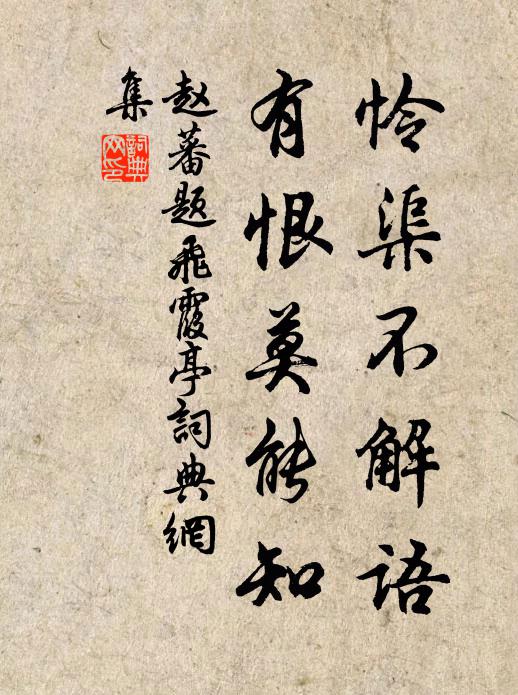 怜渠不解语
有恨莫能知
赵蕃题飛霞亭詞典網
集
詞典
网印